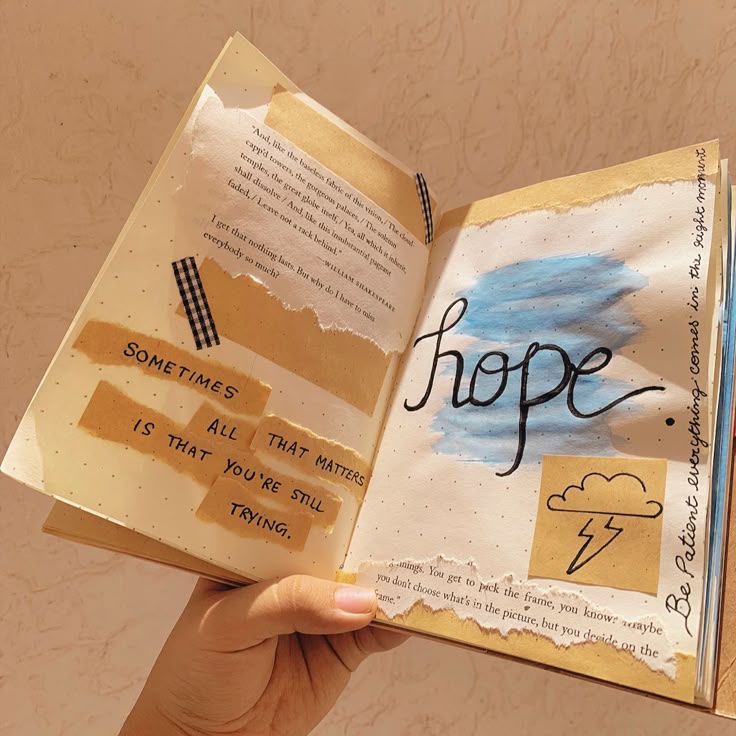 "And, like the baseless fabric of this vision, / The cloud-
capp'd towers, the gorgeous palaces, / The solemn
temples, the great globe itself, / Yea, all which it inherit,
shall dissolve / And, like this insubstantial pageant
faded, / Leave not a rack behind."
-WILLIAM SHAKESPEARE
I get that nothing lasts. But why do I have to miss
everybody so much?
SOMETIMES
ALL THAT MATTERS
IS THAT YOU'RE STILL
TRYING.
hope.
Be Patient everything comes in the right moment
things. You get to pick the frame, you know? Maybe
you don't choose what's in the picture, but you decide on the
frame."